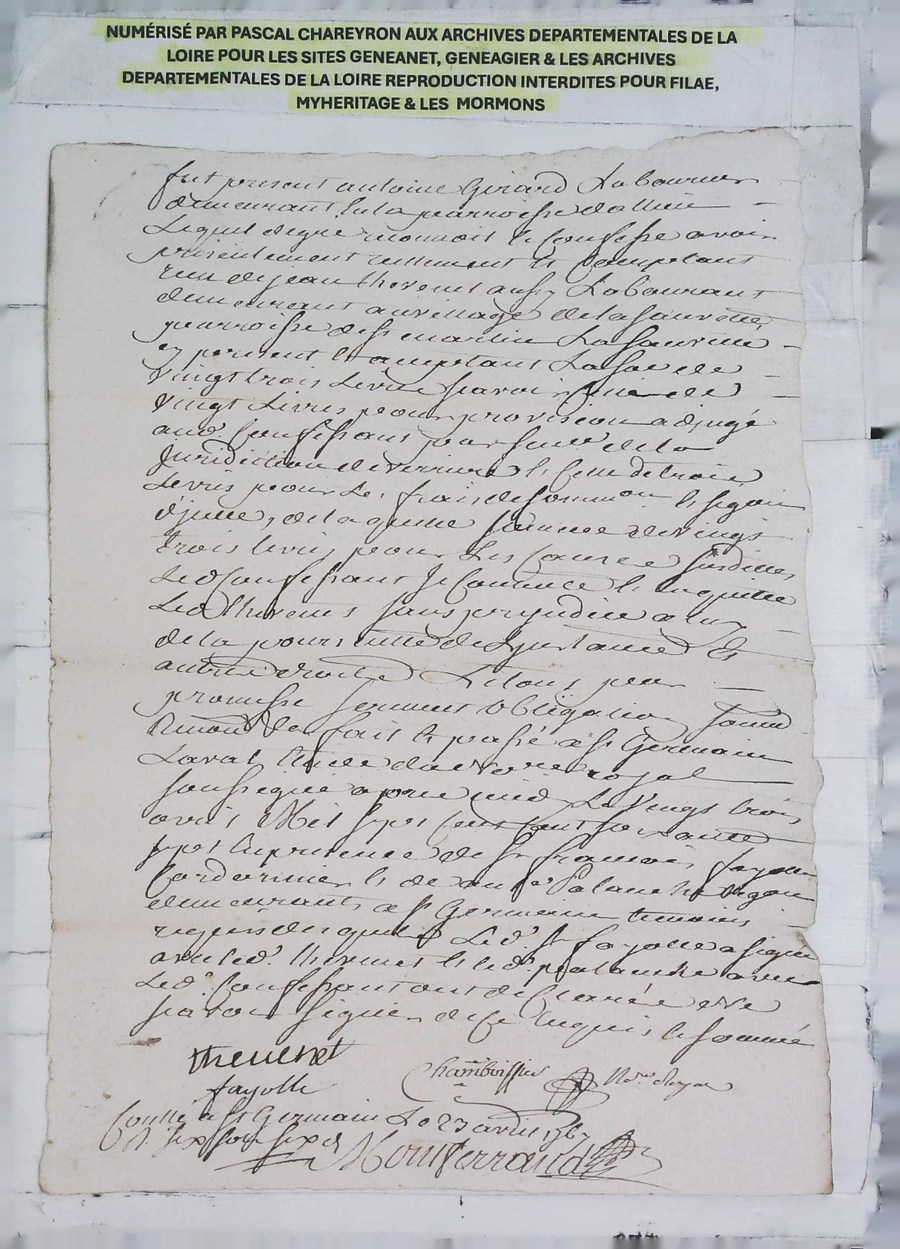 NUMÉRISÉ PAR PASCAL CHAREYRON AUX ARCHIVES DEPARTEMENTALES DE LA
LOIRE POUR LES SITES GENEANET, GENEAGIER & LES ARCHIVES
DEPARTEMENTALES DE LA LOIRE REPRODUCTION INTERDITES POUR FILAE,
MYHERITAGE & LES MORMONS
fut present antoine Girard Laboureur
demeurant en la parroisse dallieu
Lequel de gré reconnoit et Confesse avoir
présentement réellement et Comptant
reçu de jean thevenet aussy Labourant
demeurant au village de la sauveté
parroisse de st martin La sauveté
cy présent et acceptant La somme de
vingt trois Livres scavoir celle de
vingt Livres pour provision adjugé
aud. Confessant par sentce. de la
Juridiction de et Celle de trois
Livres pour les frais de et
d'jcelle, de laquelle somme de vingt
trois livres pour Les Causes susdittes
Led Confessant se Contente et en quitte
Led thevenet sans préjudice a luy
de la poursuitte de Linstance et
autres droits Et tous pour
promesse serment obligation soumd.
renond. fait et passé a st Germain
Laval Etude du nore. royal
soussigné apres midy Le vingt trois
avril Mil sept Cent soixante
sept En presence de sr. françois fayolle
Cordonnier et de Palanche
demeurants a st Germain temoins
requis desquels Led. sr fayolle a signé
avec led. thevenet et led. palanche avec
Led. Confessant ont declarés ne
scavoir signer de ce Enquis et sommé
thevenet
fayolle
Chamboissier Nore. Royal
Conllé a st Germain Le 23 avril 1767
R. six sous six d
Montterrand